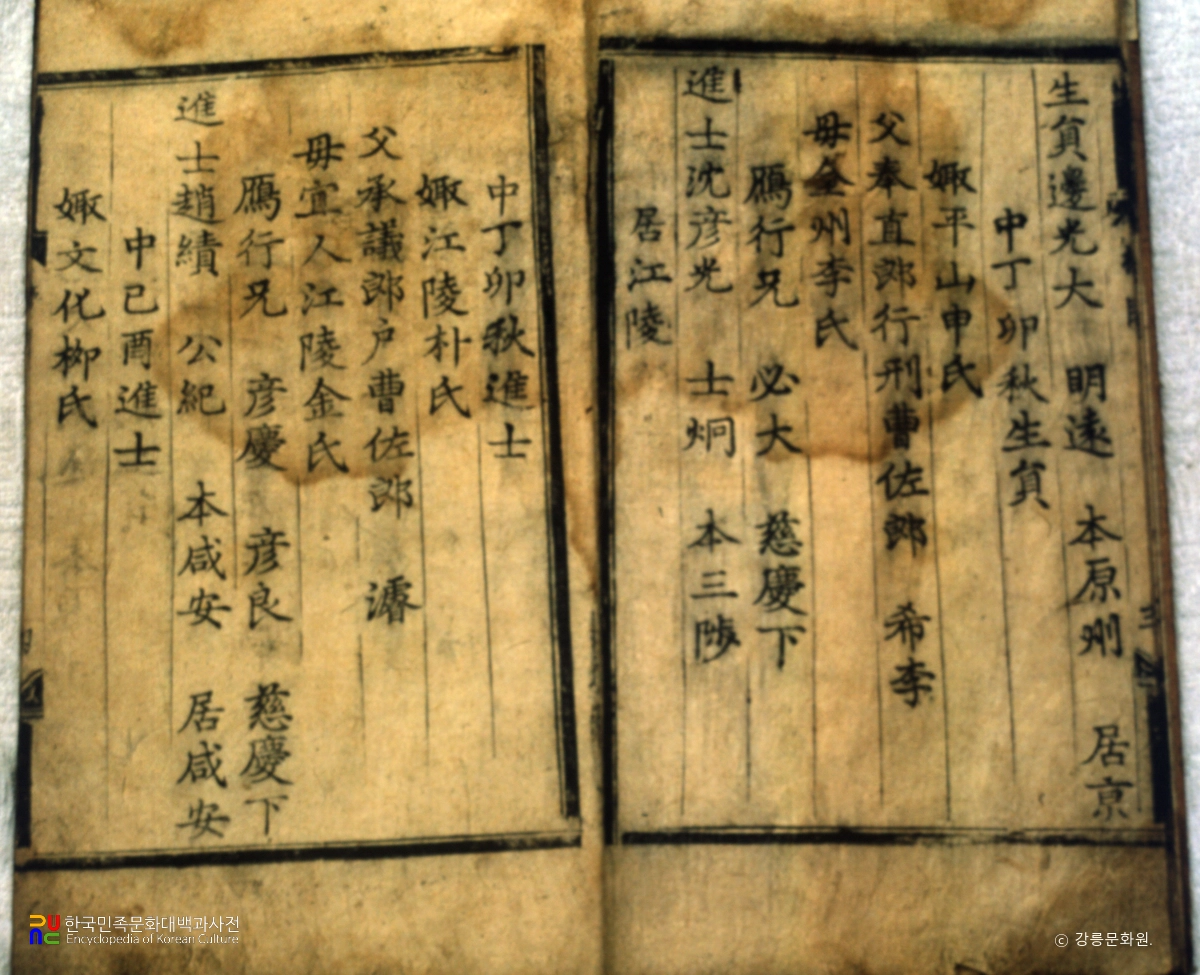 生員邊光大 明遠 本原州 居京
中丁卯秋生員
娵平山申氏
父奉直郎行刑曹佐郎 希李
母全州李氏
鴈行兄 必大 慈慶下
進士沈彦光 士炯 本三陟
居江陵
中丁卯秋進士
娵江陵朴氏
父承議郎户曹佐郎 濬
母宜人江陵金氏
鴈行兄 彦慶 彦良 慈慶下
進士趙績 公紀 本咸安 居咸安
中己酉進士
娵文化柳氏
한국민족문화대백과사전
Encyclopedia of Korean Culture
© 강릉문화원.